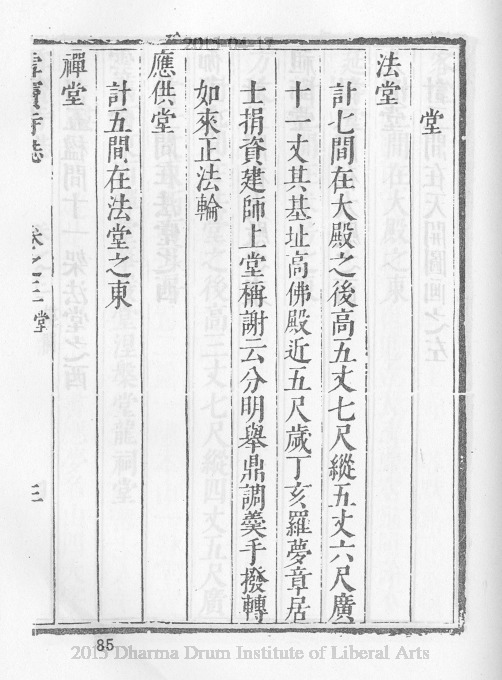 堂
法堂
計七間在大殿之後高五丈七尺縱五丈六尺廣
十一丈其基址高佛殿近五尺歲丁亥羅夢章居
士捐資建師上堂稱謝云分明舉鼎調羹手撥轉
如來正法輪
應供堂
計五間在法堂之東
禪堂
寶寺誌 卷之三 堂 三
2013-04-17
85
2013 Dharma Drum Institute of Liberal Arts